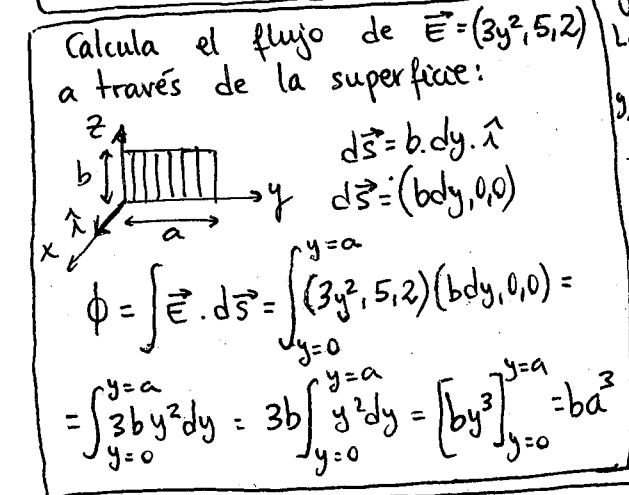 Calcula el flujo de E⃗=(3y²,5,2)
a través de la superficie:
z
b
ds⃗=b.dy.î
y
ds⃗=(bdy,0,0)
î
a
x
ϕ=∫E⃗.ds⃗=∫_{y=0}^{y=a}(3y²,5,2)(bdy,0,0)=
=∫_{y=0}^{y=a}3by²dy=3b∫_{y=0}^{y=a}y²dy=[by³]_{y=0}^{y=a}=ba³